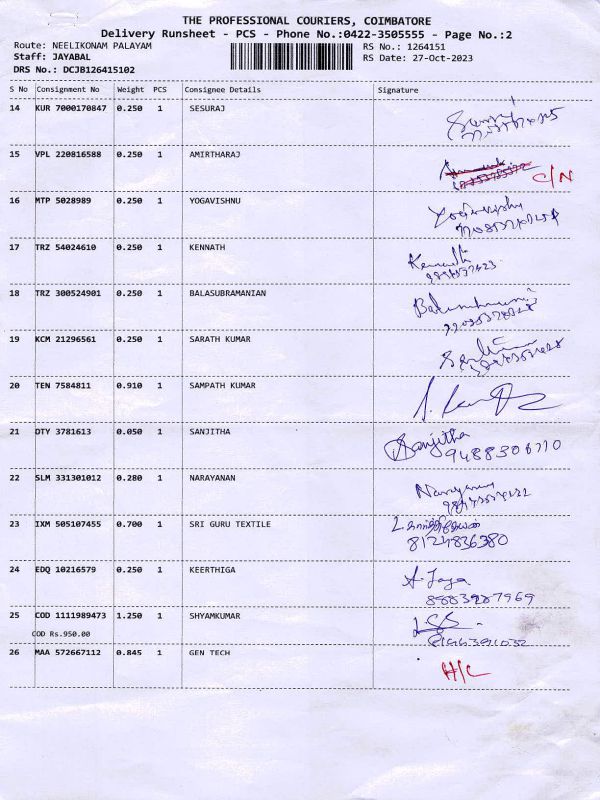 THE PROFESSIONAL COURIERS, COIMBATORE
Delivery Runsheet - PCS - Phone No.:0422-3505555 - Page No.:2
Route: NEELIKONAM PALAYAM
RS No.: 1264151
Staff: JAYABAL
RS Date: 27-Oct-2023
DRS No.: DCJB126415102
S No Consignment No Weight PCS Consignee Details Signature
14 KUR 7000170847 0.250 1 SESURAJ
15 VPL 220816588 0.250 1 AMIRTHARAJ
C/N
16 MTP 5028989 0.250 1 YOGAVISHNU
17 TRZ 54024610 0.250 1 KENNATH
18 TRZ 300524901 0.250 1 BALASUBRAMANIAN
19 KCM 21296561 0.250 1 SARATH KUMAR
20 TEN 7584811 0.910 1 SAMPATH KUMAR
21 DTY 3781613 0.050 1 SANJITHA Sanjitha
22 SLM 331301012 0.280 1 NARAYANAN
23 IXM 505107455 0.700 1 SRI GURU TEXTILE
8124836380
24 EDQ 10216579 0.250 1 KEERTHIGA A Jaya
8883987969
25 COD 1111989473 1.250 1 SHYAMKUMAR
COD Rs.950.00
26 MAA 572667112 0.845 1 GEN TECH H/C